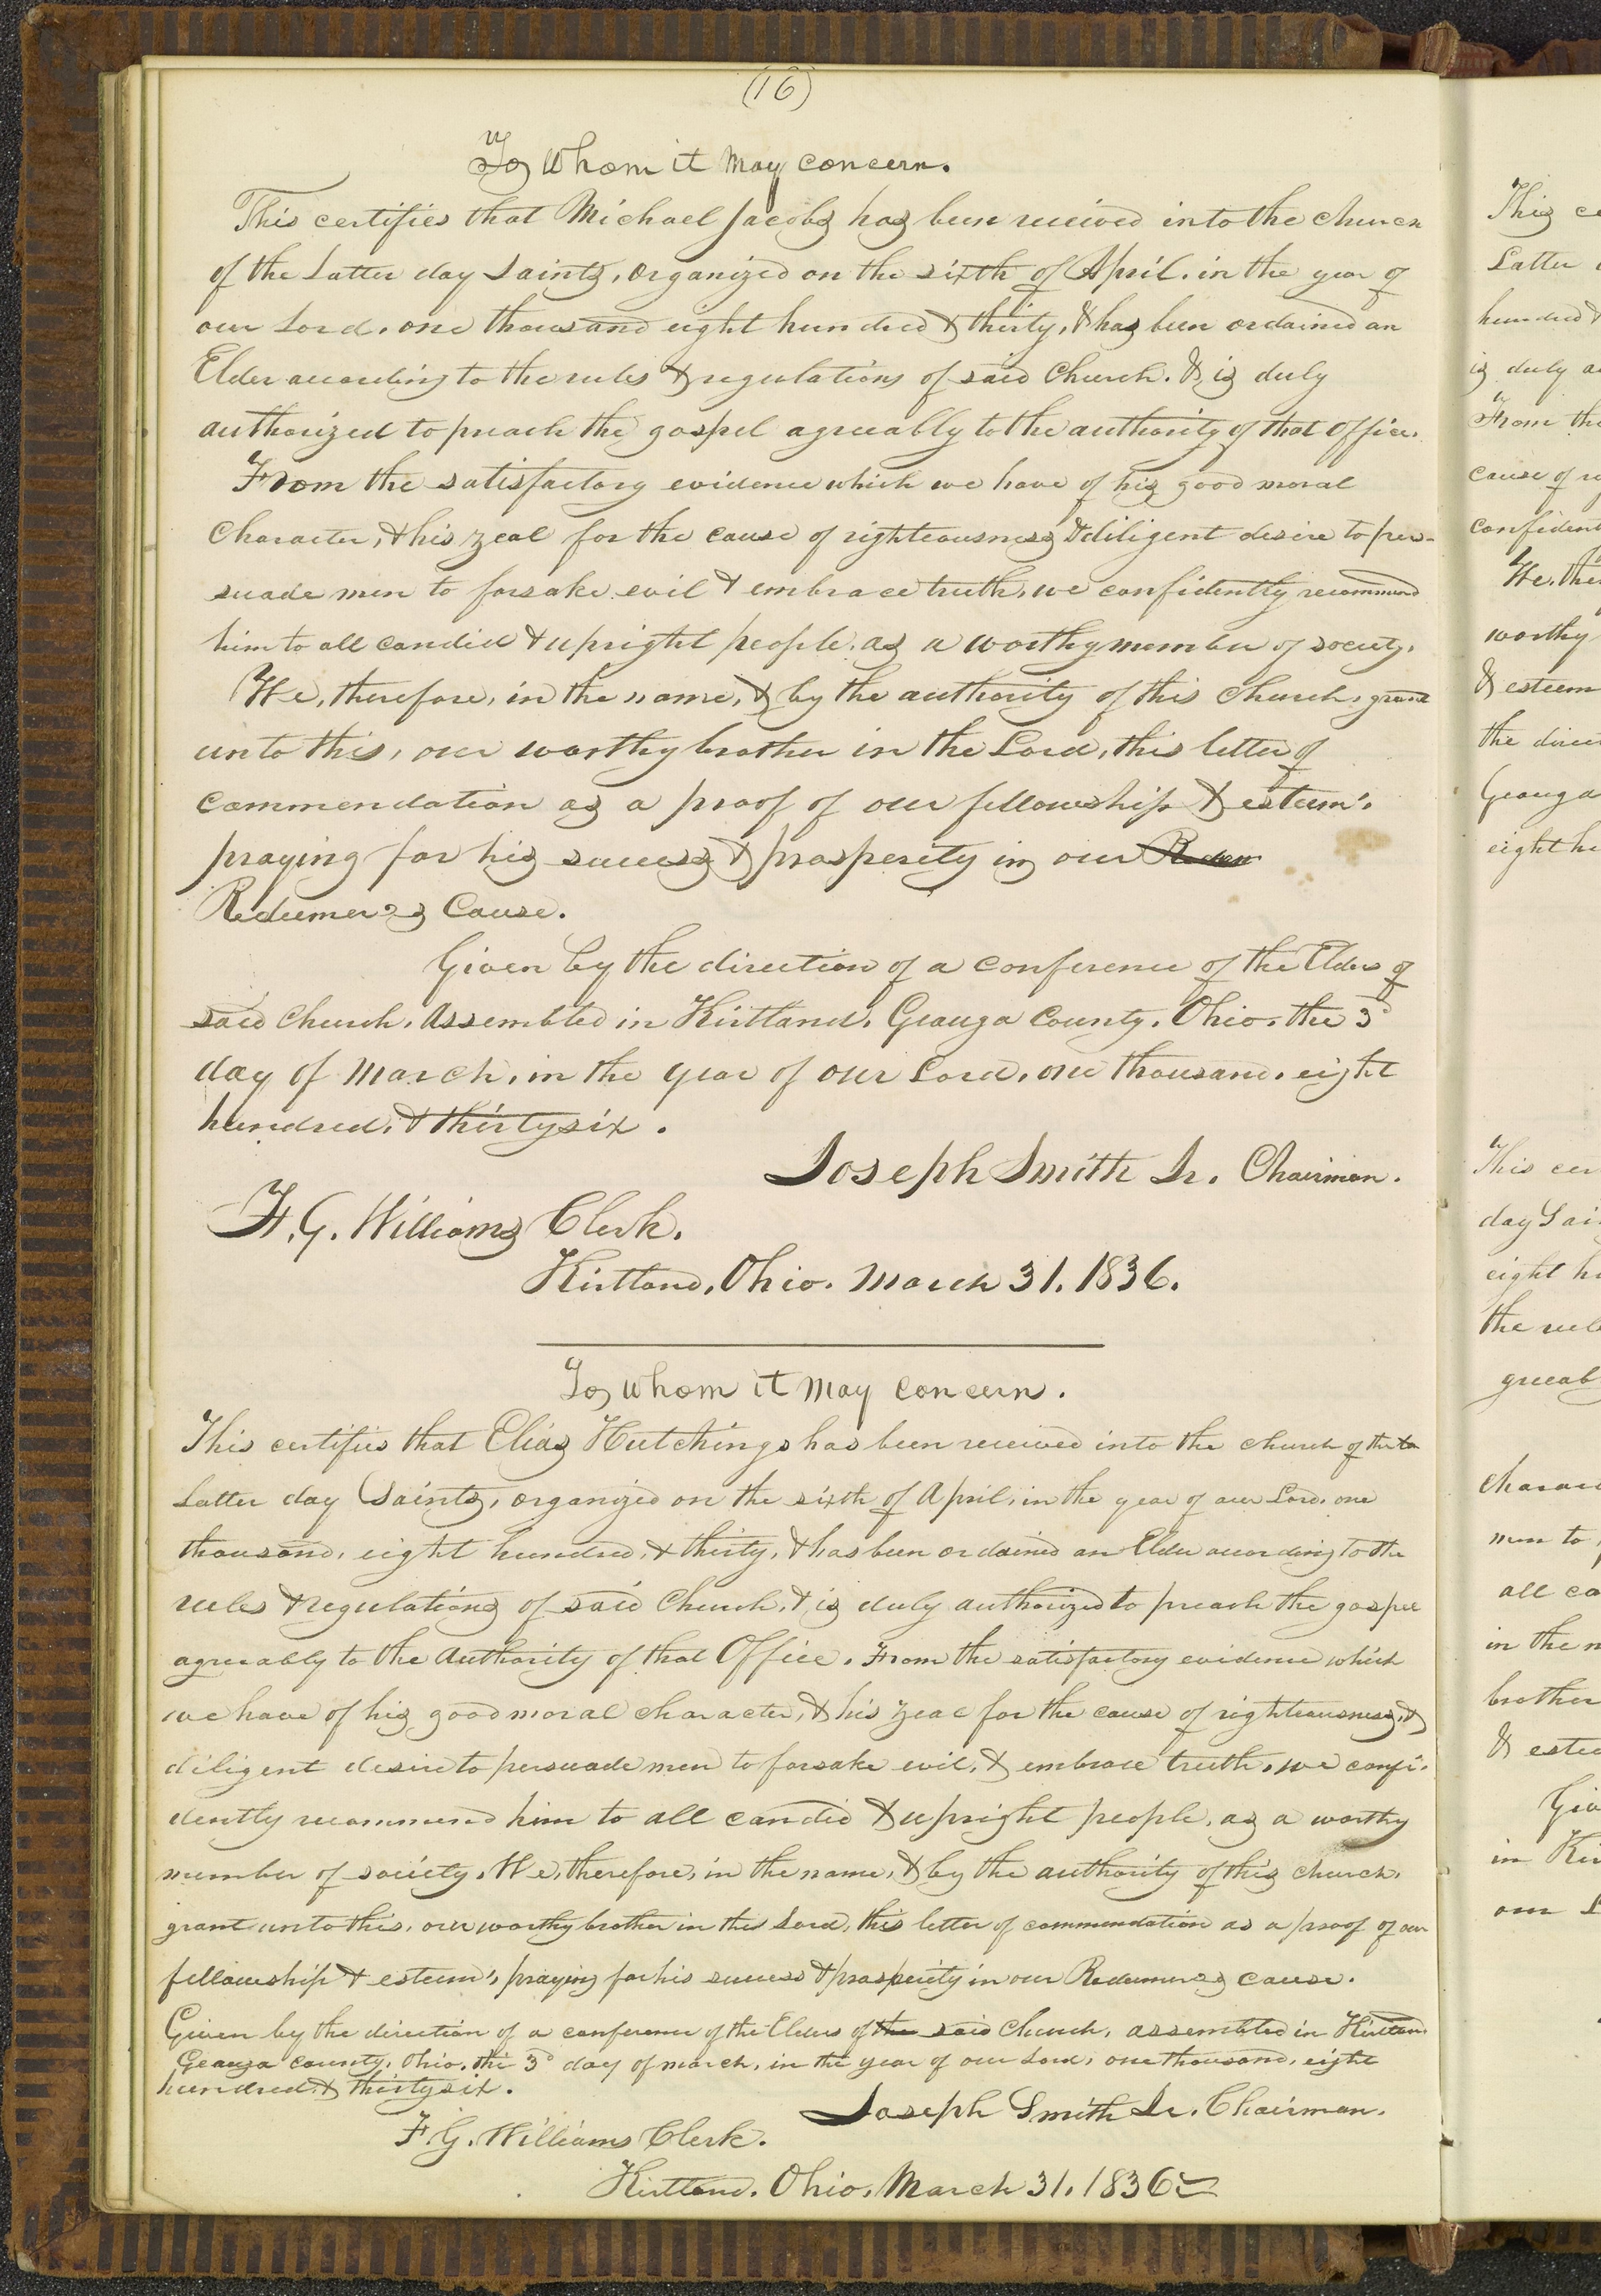 (16)
To whom it may concern.
This certifies that Michael Jacobs has been received into the church
of the Latter day Saints, organized on the sixth of April, in the year of
our Lord, one thousand eight hundred & thirty, & has been ordained an
Elder according to the rules & regulations of said Church. & is duly
authorized to preach the gospel agreeably to the authority of that office.
From the satisfactory evidence which we have of his good moral
Character, & his zeal for the cause of righteousness & diligent desire to per-
suade men to forsake evil & embrace truth, we confidently recommend
him to all candid & upright people, as a worthy member of society.
We, therefore, in the name, & by the authority of this church, grant
unto this, our worthy brother in the Lord, this letter of
commendation as a proof of our fellowship & esteem;
praying for his success & prosperity in our
Redeemer's Cause.
Given by the direction of a conference of the Elders of
said Church, Assembled in Kirtland, Geauga County, Ohio, the 3d
day of March, in the year of our Lord, one thousand, eight
hundred, & thirty six.
Joseph Smith Jr. Chairman.
F. G. Williams Clerk.
Kirtland, Ohio. March 31. 1836.
To whom it may concern.
This certifies that Elias Hutchings has been received into the church of the
Latter day Saints, organized on the sixth of April, in the year of our Lord, one
thousand, eight hundred, & thirty, & has been ordained an Elder according to the
rules & regulations of said Church, & is duly authorized to preach the gospel
agreeably to the authority of that Office. From the satisfactory evidence which
we have of his good moral character, & his zeal for the cause of righteousness, &
diligent desire to persuade men to forsake evil, & embrace truth, we confi-
dently recommend him to all candid & upright people, as a worthy
member of society. We, therefore, in the name, & by the authority of this church,
grant unto this, our worthy brother in the Lord, this letter of commendation as a proof of our
fellowship & esteem; praying for his success & prosperity in our Redeemer's cause.
Given by the direction of a conference of the Elders of the said Church, assembled in Kirtland
Geauga County, Ohio, the 3d day of March, in the year of our Lord, one thousand, eight
hundred & thirty six.
Joseph Smith Jr. Chairman.
F. G. Williams Clerk.
Kirtland, Ohio, March 31. 1836
This ce
Latter
hundred &
is duly a
From the
cause of r
confident
We, the
worthy
& esteem
the direc
Geauga
eight h
This cer
day Sai
eight h
the rul
greeab
charac
men to
all ca
in the n
brother
& estee
Giv
in Kir
our L